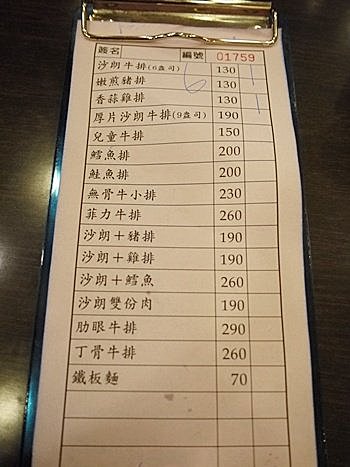 簽名 編號 01759
沙朗牛排(6盎司) 130 1
嫩煎豬排 130
香蒜雞排 130 1
厚片沙朗牛排(9盎司) 190
兒童牛排 150
鱈魚排 200
鮭魚排 200
無骨牛小排 230
菲力牛排 260
沙朗＋豬排 190
沙朗＋雞排 190
沙朗＋鱈魚 260
沙朗雙份肉 190
肋眼牛排 290
丁骨牛排 260
鐵板麵 70